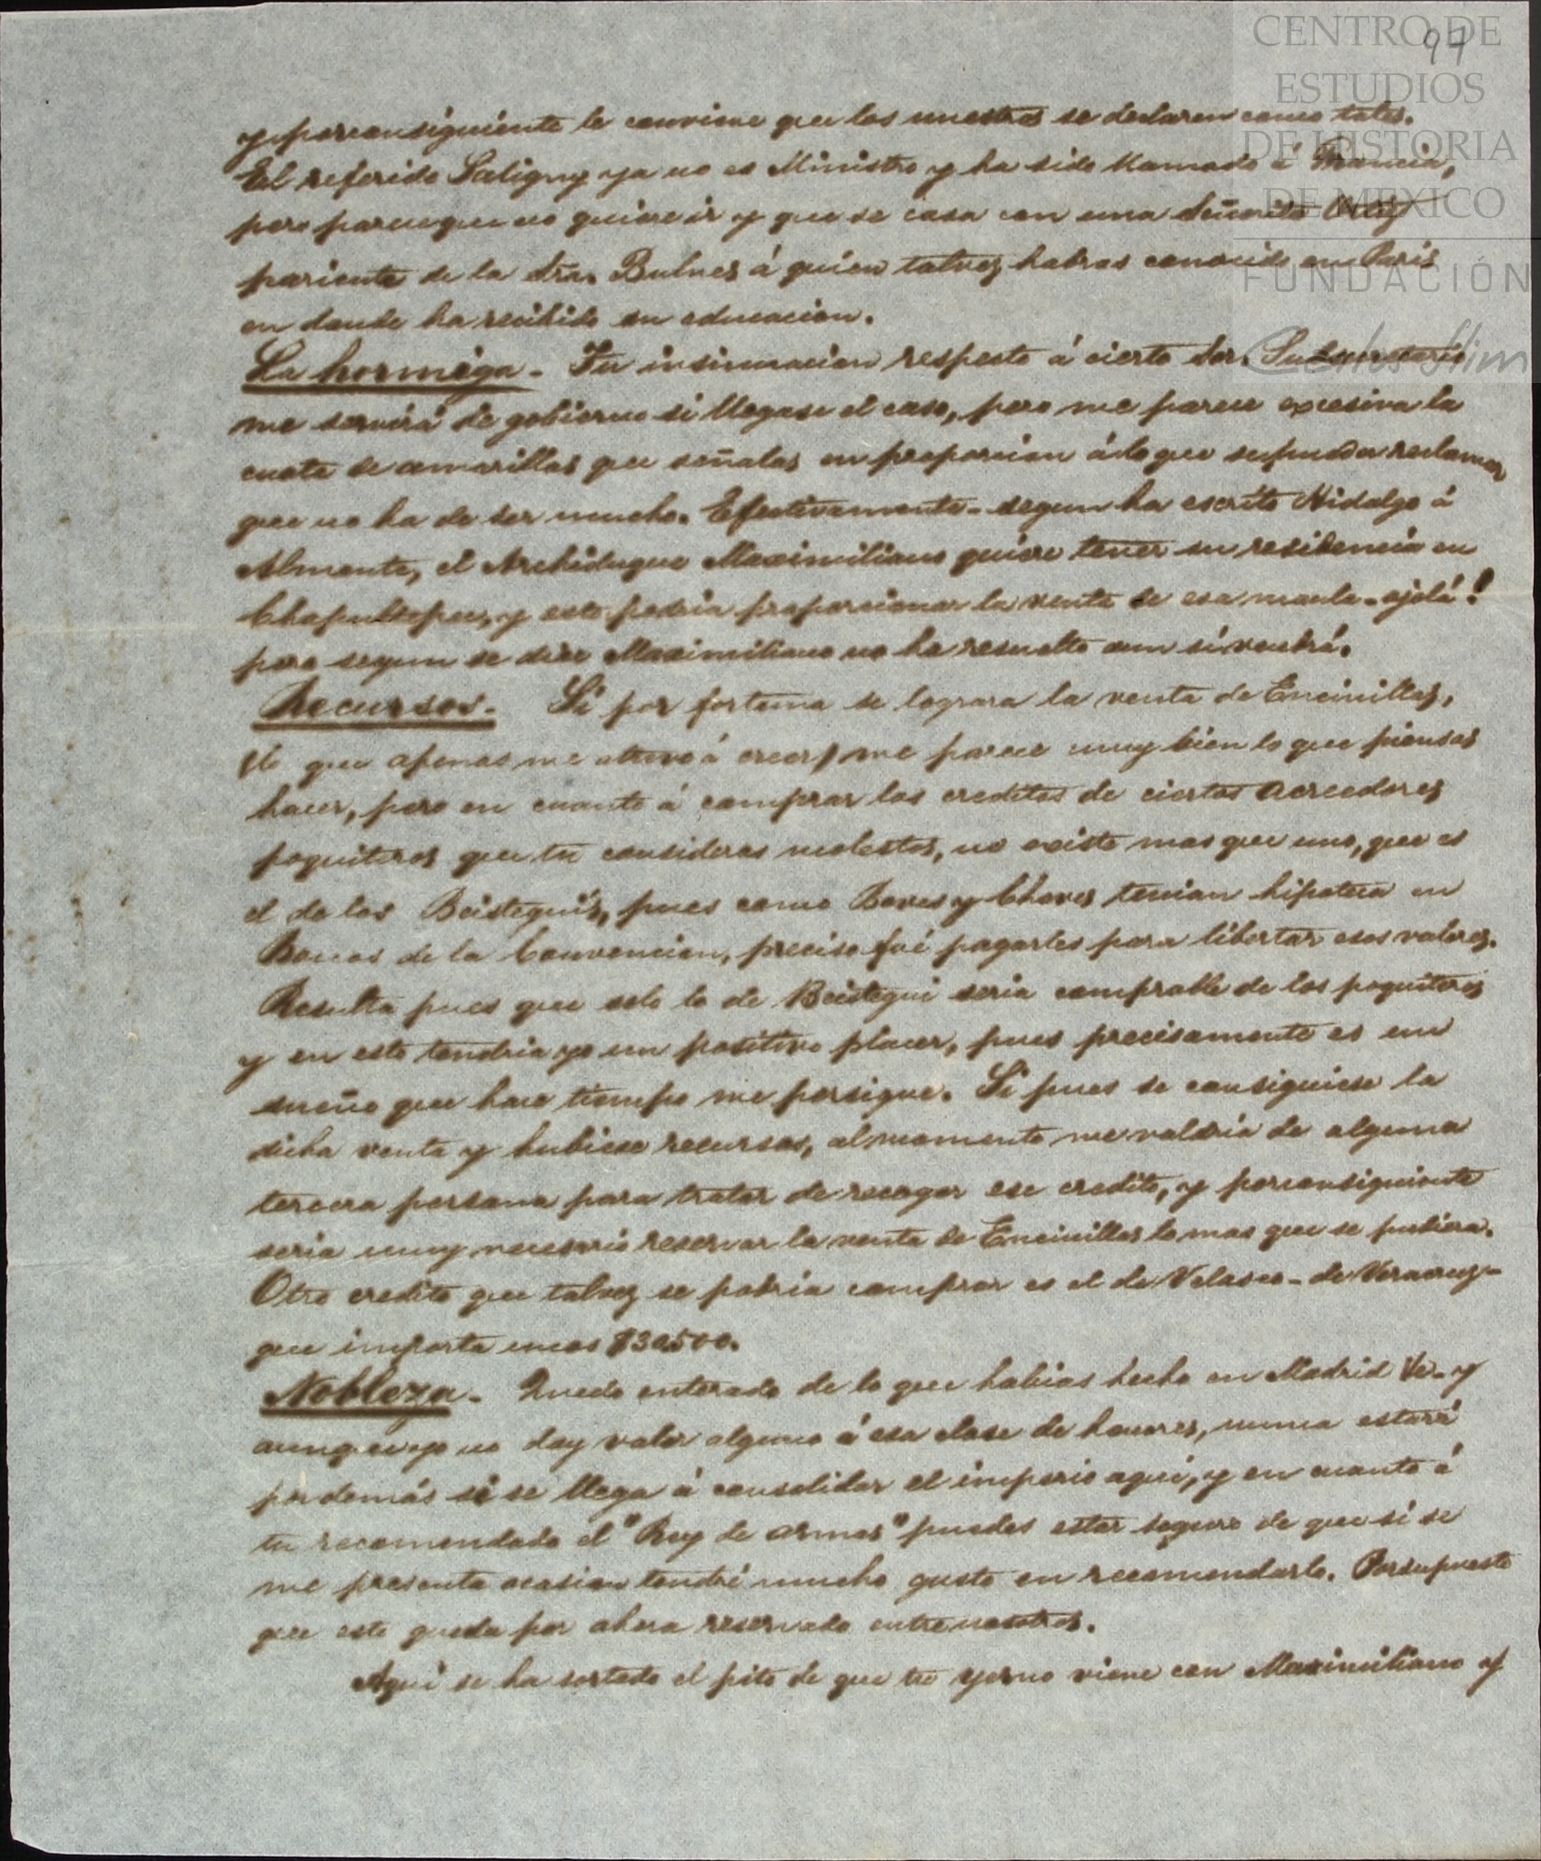 97
CENTRO DE
ESTUDIOS
DE HISTORIA
DE MEXICO
FUNDACIÓN
Carlos Slim
y porconsiguiente le conviene que los nuestros se declaren como tales.
El referido Saligny ya no es Ministro y ha sido llamado á Francia,
pero parece que no quiere ir y que se casa con una Señorita Ortiz
pariente de la Sra. Bulnes á quien talvez habras conocido en Paris
en donde ha recibido su educacion.
La hormiga - Tu insinuacion respecto á cierto Sor. Subsecretario
me servirá de gobierno si llegase el caso, pero me parece excesiva la
cuota de amarillas que señalas en proporcion á lo que se pueda reclamar
que no ha de ser mucho. Efectivamente - segun ha escrito Hidalgo á
Almonte, el Archiduque Maximiliano quiere tener su residencia en
Chapultepec, y esto podria proporcionar la venta de esa maula - ojalá!
pero segun se dice Maximiliano no ha resuelto aun si vendrá.
Recursos. Si por fortuna se lograra la venta de Encinillas,
(lo que apenas me atrevo á creer) me parece muy bien lo que piensas
hacer, pero en cuanto á comprar los creditos de ciertos acreedores
poquiteros que tu consideras molestos, no existe mas que uno, que es
el de los Beisteguis, pues como Baves y Chaves tenian hipoteca en
Bonos de la Convencion, preciso fué pagarles para libertar esos valores.
Resulta pues que solo lo de Beistegui seria comprable de los poquiteros
y en esto tendria yo un positivo placer, pues precisamente es un
sueño que hace tiempo me persigue. Si pues se consiguiese la
dicha venta y hubiese recursos, al momento me valdria de alguna
tercera persona para tratar de recoger ese credito, y porconsiguiente
seria muy necesario reservar la venta de Encinillas lo mas que se pudiera.
Otro credito que talvez se podria comprar es el de Velasco - de Veracruz -
que importa unos $30500.
Nobleza - Quedo enterado de lo que habias hecho en Madrid Va. y
aunque yo no doy valor alguno á esa clase de honores, nunca estará
por demás si se llega á consolidar el imperio aqui, y en cuanto á
tu recomendado el "Rey de armas" puedes estar seguro de que si se
me presenta ocasion tendré mucho gusto en recomendarlo. Porsupuesto
que esto queda por ahora reservado entre nosotros.
Aqui se ha soltado el pito de que tu yerno viene con Maximiliano y